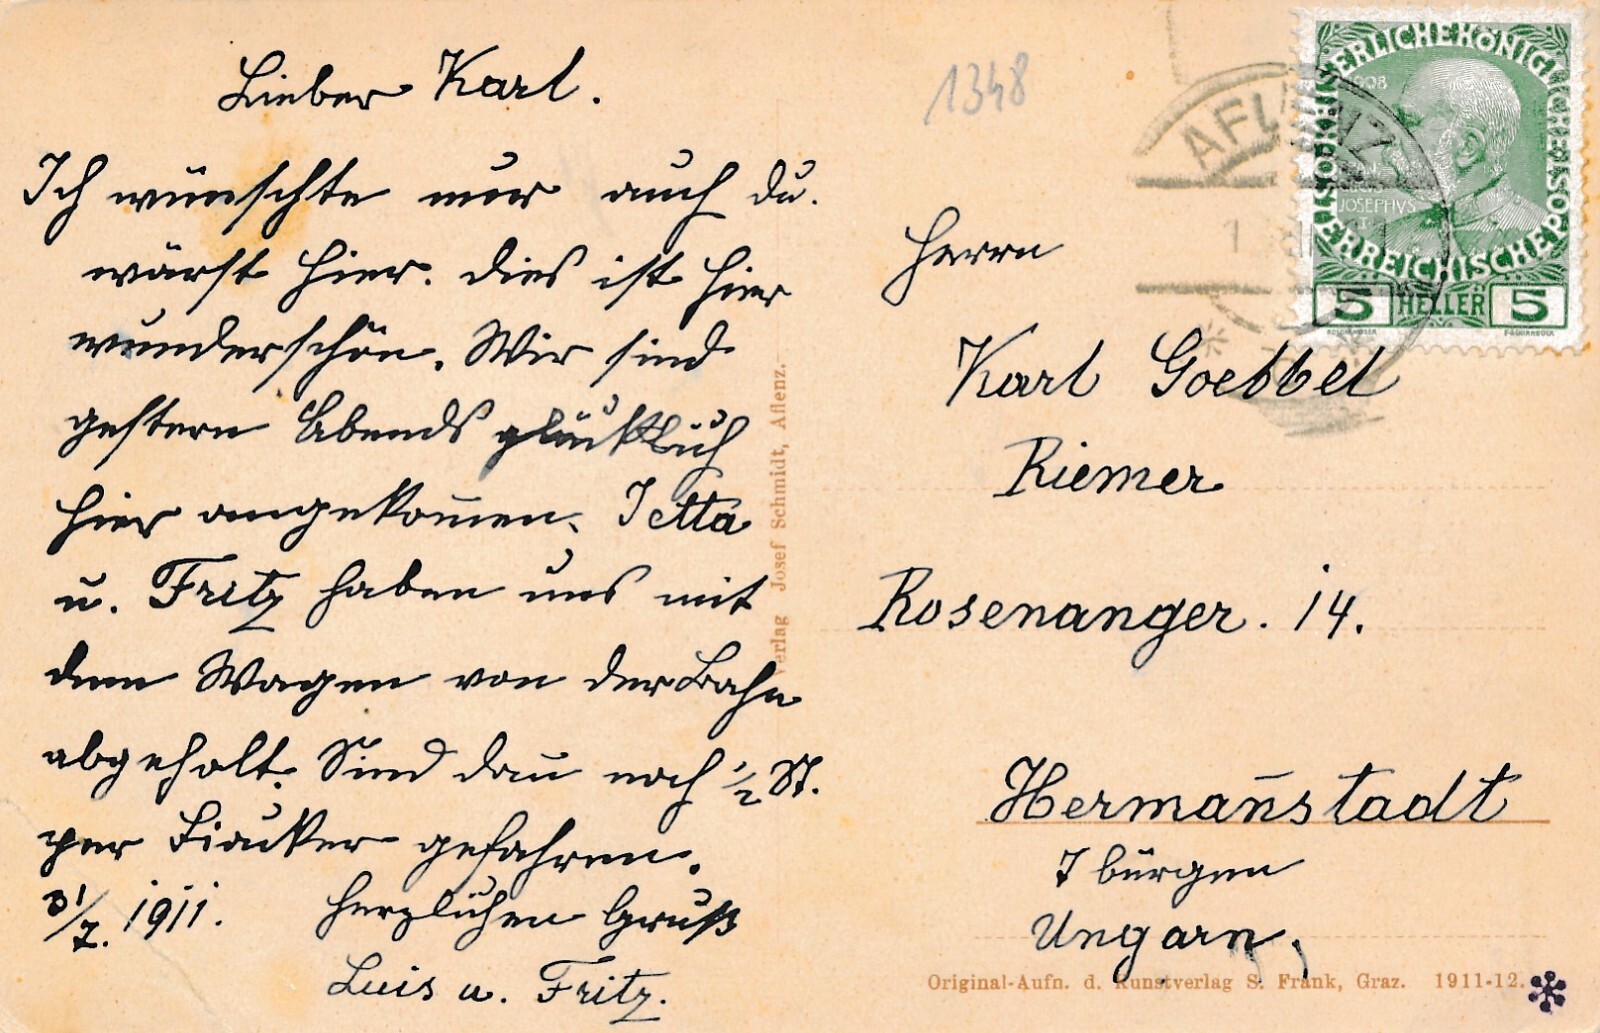 Lieber Karl.
Ich wünschte nur auch du.
wärst hier. Dies ist hier
wunderschön. Wir sind
gestern Abends glücklich
hier angekom̄en. Jetta
u. Fritz haben uns mit
dem Wagen von der Bahn
abgeholt. Sind dan̄ noch 1/2 St.
per Fiauker gefahren.
31/7. 1911. Herzlichen Gruß
Luis u. Fritz.
Verlag Josef Schmidt, Aflenz.
1348
AFLENZ
KAISERLICHE KÖNIGLICHE ÖSTERREICHISCHE POST
1908
JOSEPHVS
I
5 HELLER 5
Herrn
Karl Goebbel
Riemer
Rosenanger. 14.
Herman̄stadt
7 bürgen
Ungarn,
Original-Aufn. d. Kunstverlag S. Frank, Graz. 1911-12.